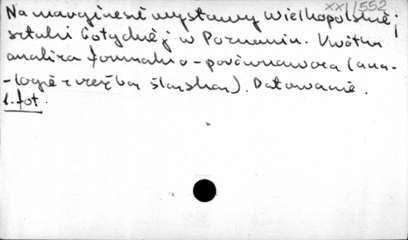 XXI/552
Na marginesie wystawy Wielkopolskiej
sztuki Gotyckiej w Poznaniu. Krótka
analiza formalno-porównawcza (ana-
-logie z rzeźbą śląską). Datowanie.
1. fot.